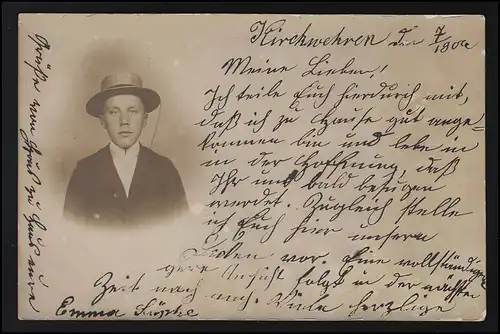 Kirchwehren d. 7/
Meine Lieben!
Ich teile Euch hierdurch mit,
daß ich zu Hause gut ange-
kommen bin und lebe in
in der Hoffnung, daß
Ihr uns bald besuchen
werdet. Zugleich stelle
ich Euch hier unsern
vor. Eine vollständi-
gere Ansicht folgt in der nächsten
Zeit nach nach. Viele herzliche
Grüße von Haus zu Haus eure
Emma